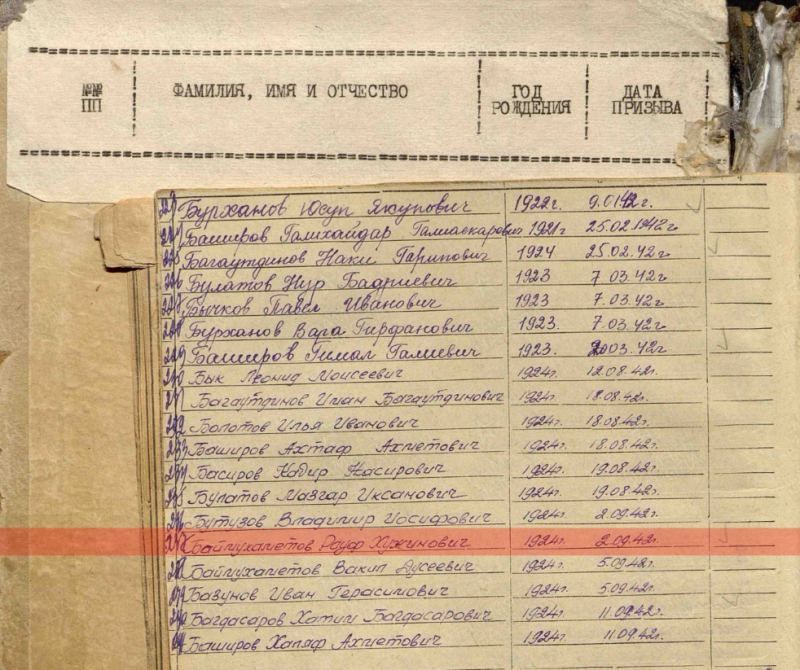 №№ ПП ФАМИЛИЯ, ИМЯ И ОТЧЕСТВО ГОД РОЖДЕНИЯ ДАТА ПРИЗЫВА
Бурханов Юсуп Якупович 1922г. 9.01.42г.
Баширов Галихайдар Галиаскарович 1921г 25.02.1942г
Багаутдинов Наки Гарипович 1924 25.02.42г
226 Булатов Нур Бадриевич 1923 7.03.42г
Бычков Павел Иванович 1923 7.03.42г
228 Бурханов Вага Гирфанович 1923. 7.03.42г
229 Баширов Гимал Галиевич 1923. 2003.42г
230 Бык Леонид Моисеевич 1924г. 12.08.42г.
231 Багаутдинов Иман Багаутдинович 1924г. 18.08.42г.
232 Болотов Илья Иванович 1924г. 18.08.42г.
233 Баширов Ахтаф Ахметович 1924г. 18.08.42г.
234 Басиров Кадир Насирович 1924г. 19.08.42г.
235 Булатов Мазгар Иксанович 1924г. 19.08.42г.
236 Бутузов Владимир Иосифович 1924г. 2.09.42г.
Баймухаметов Рауф Хужинович 1924г. 2.09.42г.
Баймухаметов Вакил Дусеевич 1924г. 5.09.42г.
Базунов Иван Герасимович 1924г. 5.09.42г.
Багдасаров Хатип Багдасарович 1924г. 11.09.42г.
Баширов Хапяф Ахметович 1924г. 11.09.42г.